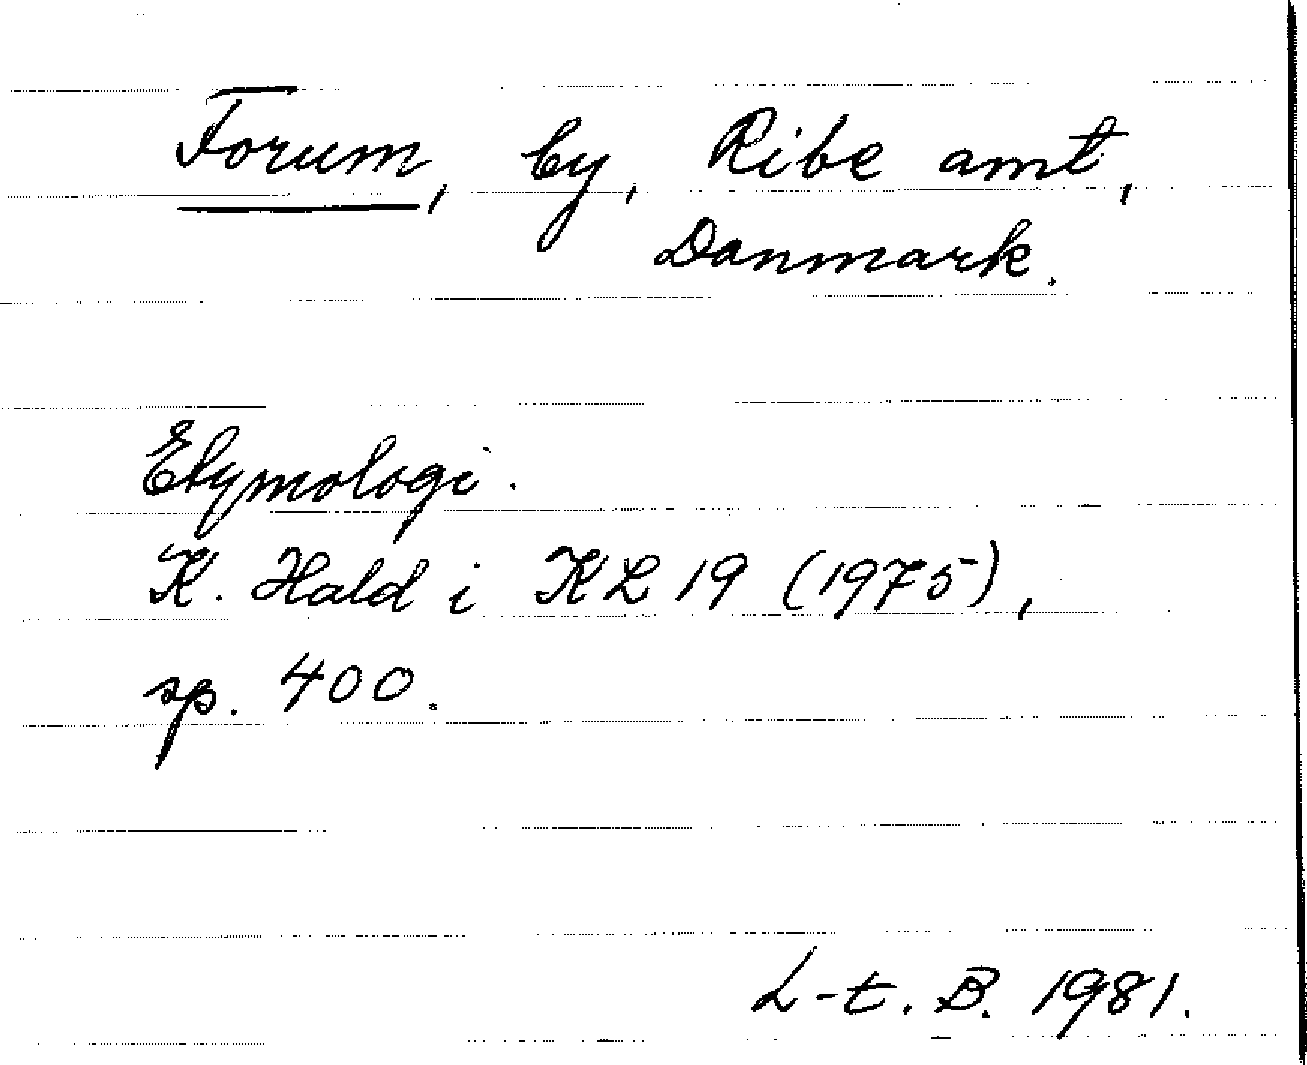 Forum, by, Ribe amt,
Danmark.
Etymologi.
K. Hald i KL 19 (1975),
sp. 400.
L-t. B. 1981.